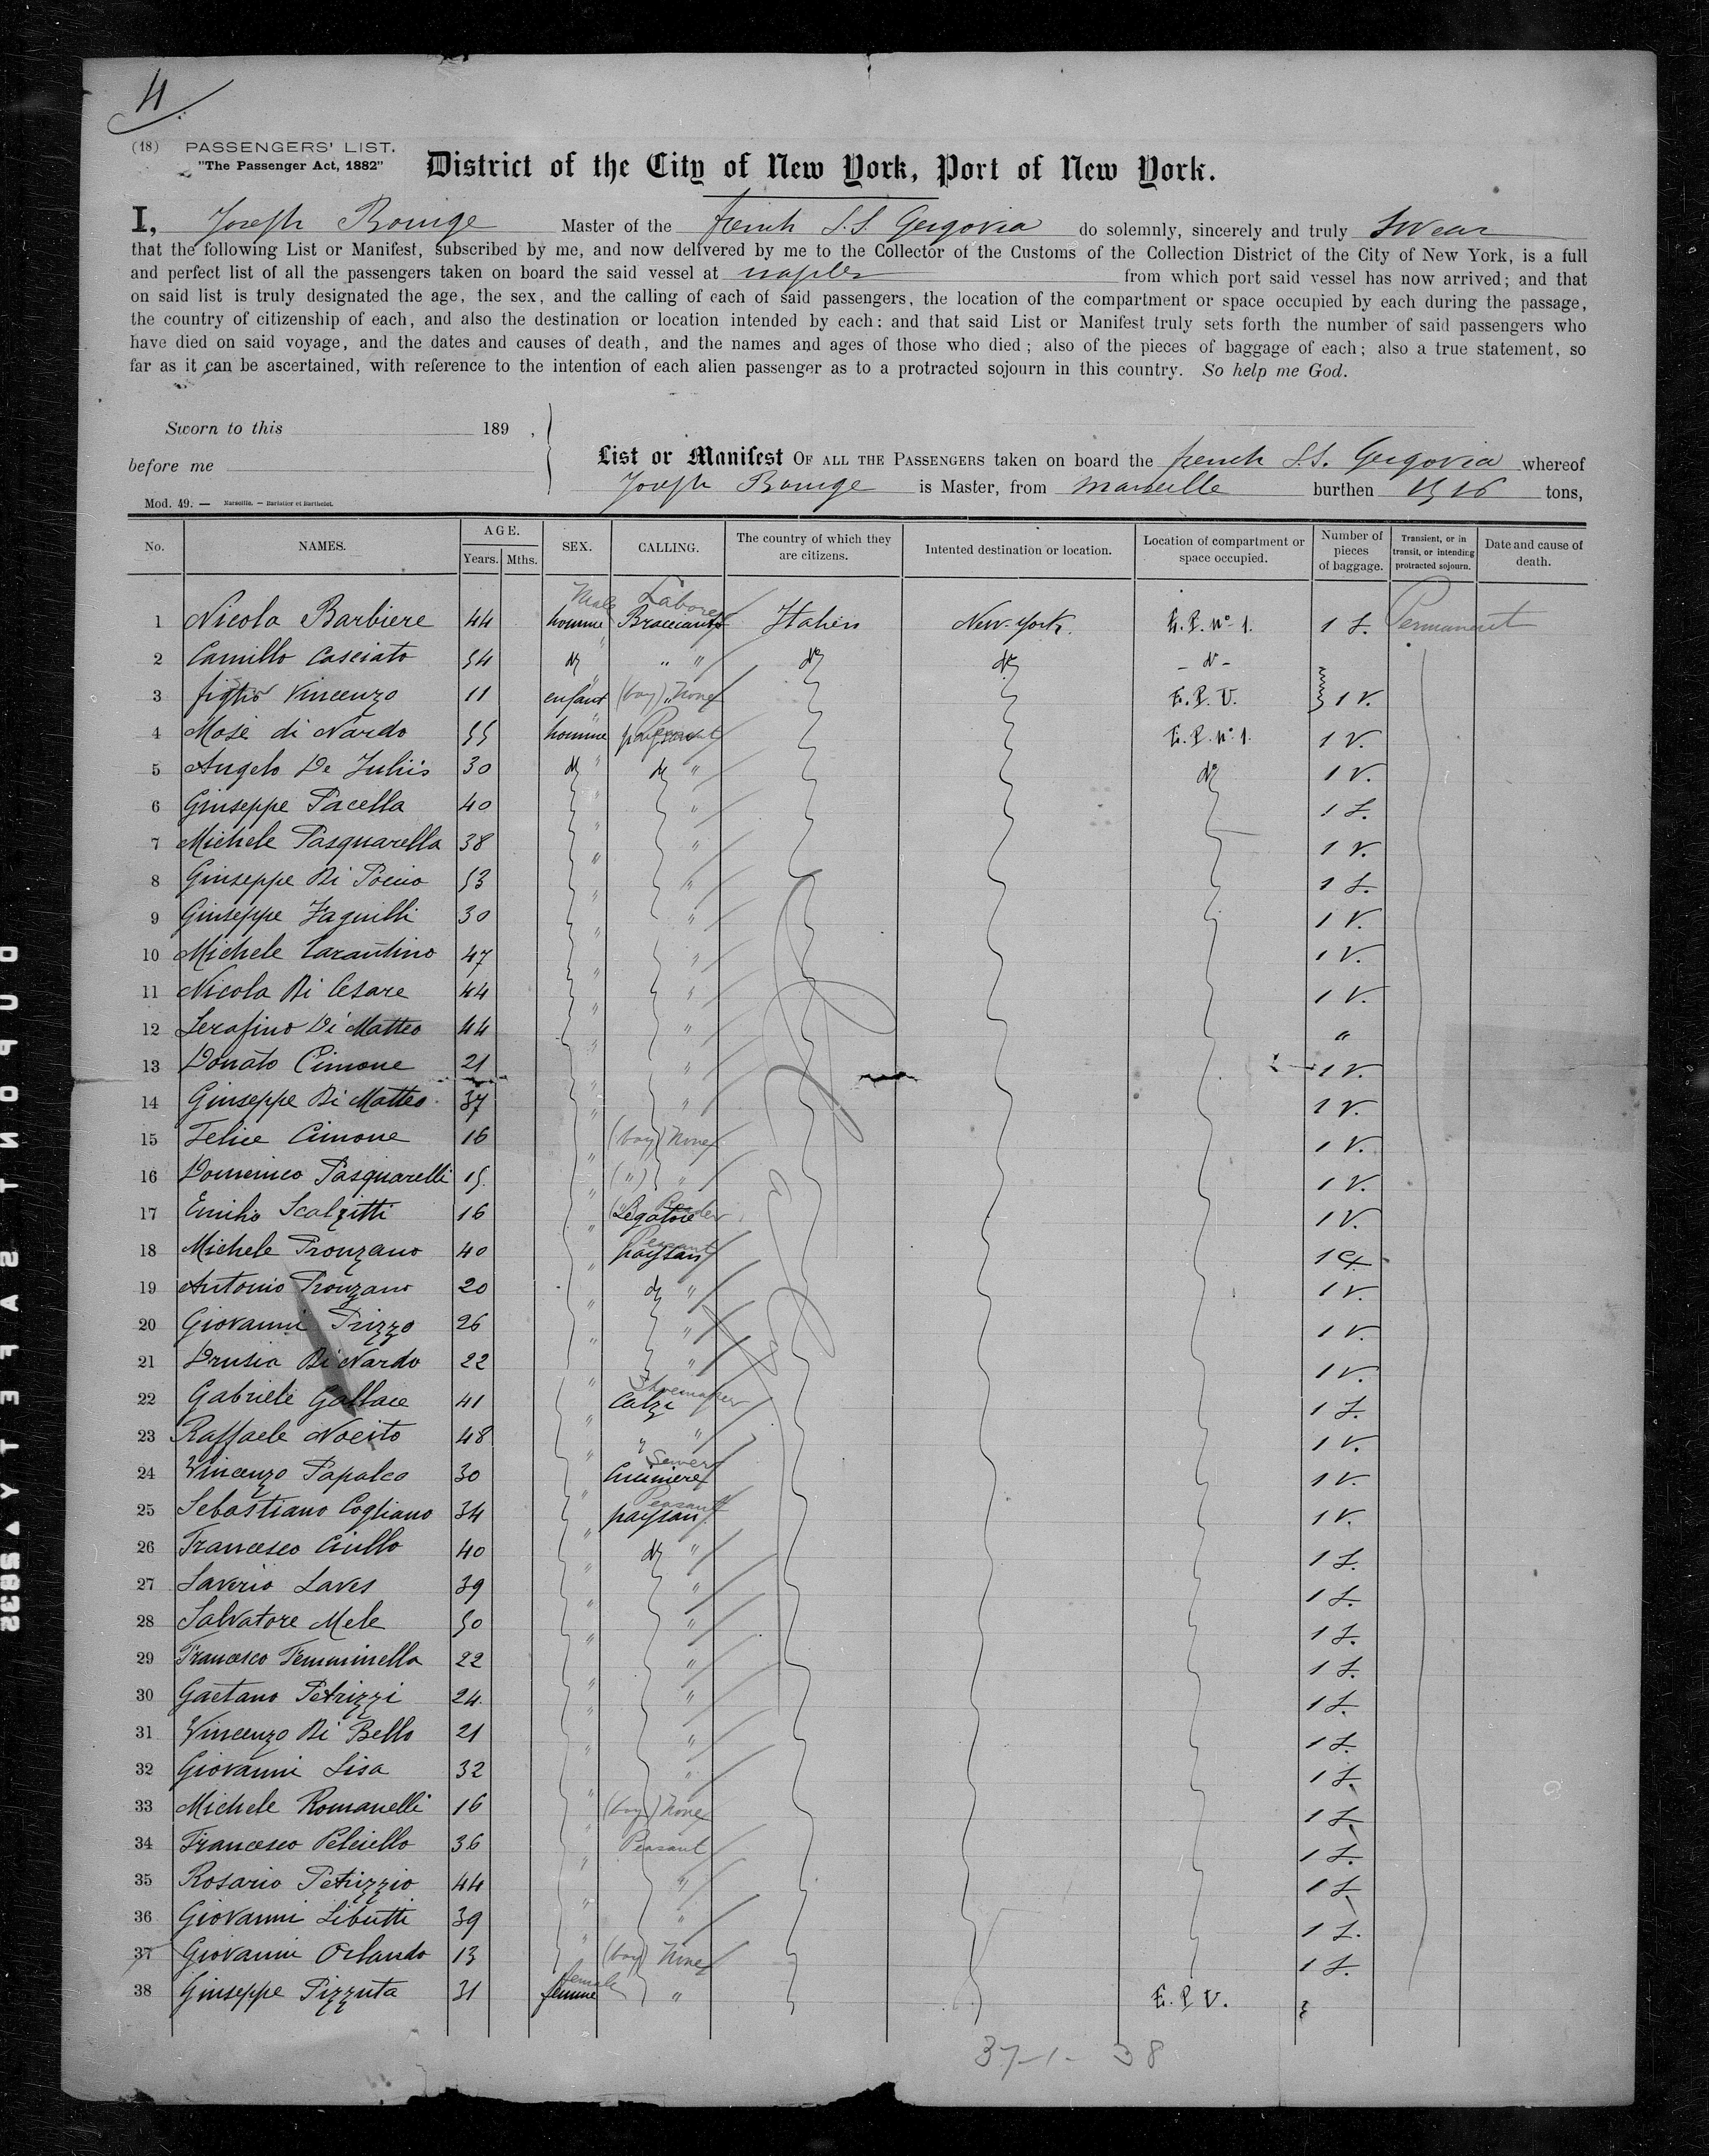 4
(18) PASSENGERS' LIST.
"The Passenger Act, 1882"
District of the City of New York, Port of New York.
I, Joseph Bouige Master of the french S.S. Gergovia do solemnly, sincerely and truly Swear
that the following List or Manifest, subscribed by me, and now delivered by me to the Collector of the Customs of the Collection District of the City of New York, is a full
and perfect list of all the passengers taken on board the said vessel at naples from which port said vessel has now arrived; and that
on said list is truly designated the age, the sex, and the calling of each of said passengers, the location of the compartment or space occupied by each during the passage,
the country of citizenship of each, and also the destination or location intended by each: and that said List or Manifest truly sets forth the number of said passengers who
have died on said voyage, and the dates and causes of death, and the names and ages of those who died; also of the pieces of baggage of each; also a true statement, so
far as it can be ascertained, with reference to the intention of each alien passenger as to a protracted sojourn in this country. So help me God.
Sworn to this 189 ,
before me
List or Manifest OF ALL THE PASSENGERS taken on board the french S.S. Gergovia whereof
Joseph Bouige is Master, from Marseille burthen 1516 tons,
Mod. 49. — Marseille. — Barlatier et Barthelet.
No. NAMES. AGE. Years. Mths. SEX. CALLING. The country of which they are citizens. Intented destination or location. Location of compartment or space occupied. Number of pieces of baggage. Transient, or in transit, or intending protracted sojourn. Date and cause of death.
Male Laborer
1 Nicola Barbiere 44 homme Bracciante Italien New-York. E.P. Nº 1. 1 S. Permanent
2 Camillo Casciato 54 dº " " dº dº - dº -
3 figlio Vincenzo 11 enfant (boy) None E.P.V. 1 V.
4 Mosè di Nardo 55 homme paysan Peasant E.P. Nº 1. 1 V.
5 Angelo De Juliis 30 dº " dº " dº 1 V.
6 Giuseppe Pacella 40 " " 1 S.
7 Michele Pasquarella 38 " " 1 V.
8 Giuseppe Di Poccio 53 " " 1 S.
9 Giuseppe Zaguilli 30 " " 1 V.
10 Michele Tarantino 47 " " 1 V.
11 Nicola Di Cesare 44 " " 1 V.
12 Serafino Di Matteo 44 " " "
13 Donato Cimone 21 " " 1 V.
14 Giuseppe Di Matteo 37 " " 1 V.
15 Felice Cimone 16 " (boy) None 1 V.
16 Domenico Pasquarelli 15. " (") " 1 V.
17 Emilio Scalzitti 16 " Legatore 1 V.
18 Michele Pronzano 40 " paysan Peasant 1 C.
19 Antonio Pronzano 20 " dº " 1 V.
20 Giovanni Prizzo 26 " " 1 V.
21 Drusia Di Nardo 22 " " 1 V.
22 Gabriele Gallace 41 " Calz. Shoemaker 1 S.
23 Raffaele Nocito 48 " " " 1 V.
24 Vincenzo Papaleo 30 " Cuciniere Sewer 1 V.
25 Sebastiano Cogliano 34 " paysan Peasant 1 V.
26 Francesco Ciullo 40 " dº " 1 S.
27 Saverio Laves 39 " " 1 S.
28 Salvatore Mele 50 " " 1 S.
29 Francesco Femminella 22 " " 1 S.
30 Gaetano Petrizzi 24. " " 1 S.
31 Vincenzo Di Bello 21 " " 1 S.
32 Giovanni Lisa 32 " " 1 S.
33 Michele Romanelli 16 " (boy) None 1 S.
34 Francesco Pelciello 36 " Peasant 1 S.
35 Rosario Petrizzio 44 " " 1 S.
36 Giovanni Libutti 39 " " 1 S.
37 Giovanni Orlando 13 " (boy) None 1 S.
38 Giuseppe Pizzuta 31 femme female " E.P.V.
37-1- 38
DUPONT SAFETY 3832